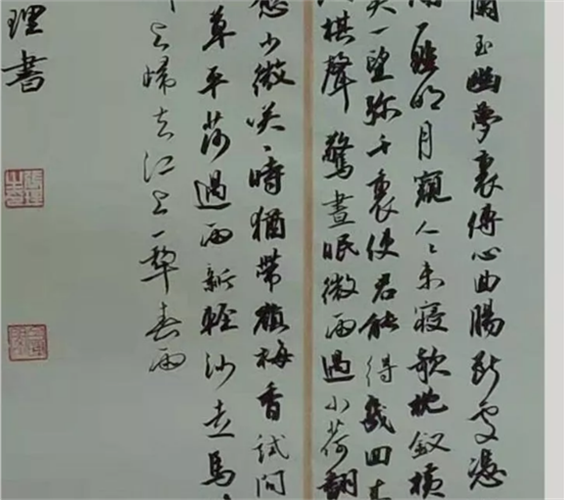 玉幽夢裏傳心曲腸斷處憑
一點明月窺人人未寢欹枕釵橫
美一望彌千裏使君能得幾回來
棋聲驚晝眠微雨過小荷翻
愈少微笑笑時猶帶嶺梅香試問
草平莎過雨新輕沙走馬
歸去江上一犁春雨
理書